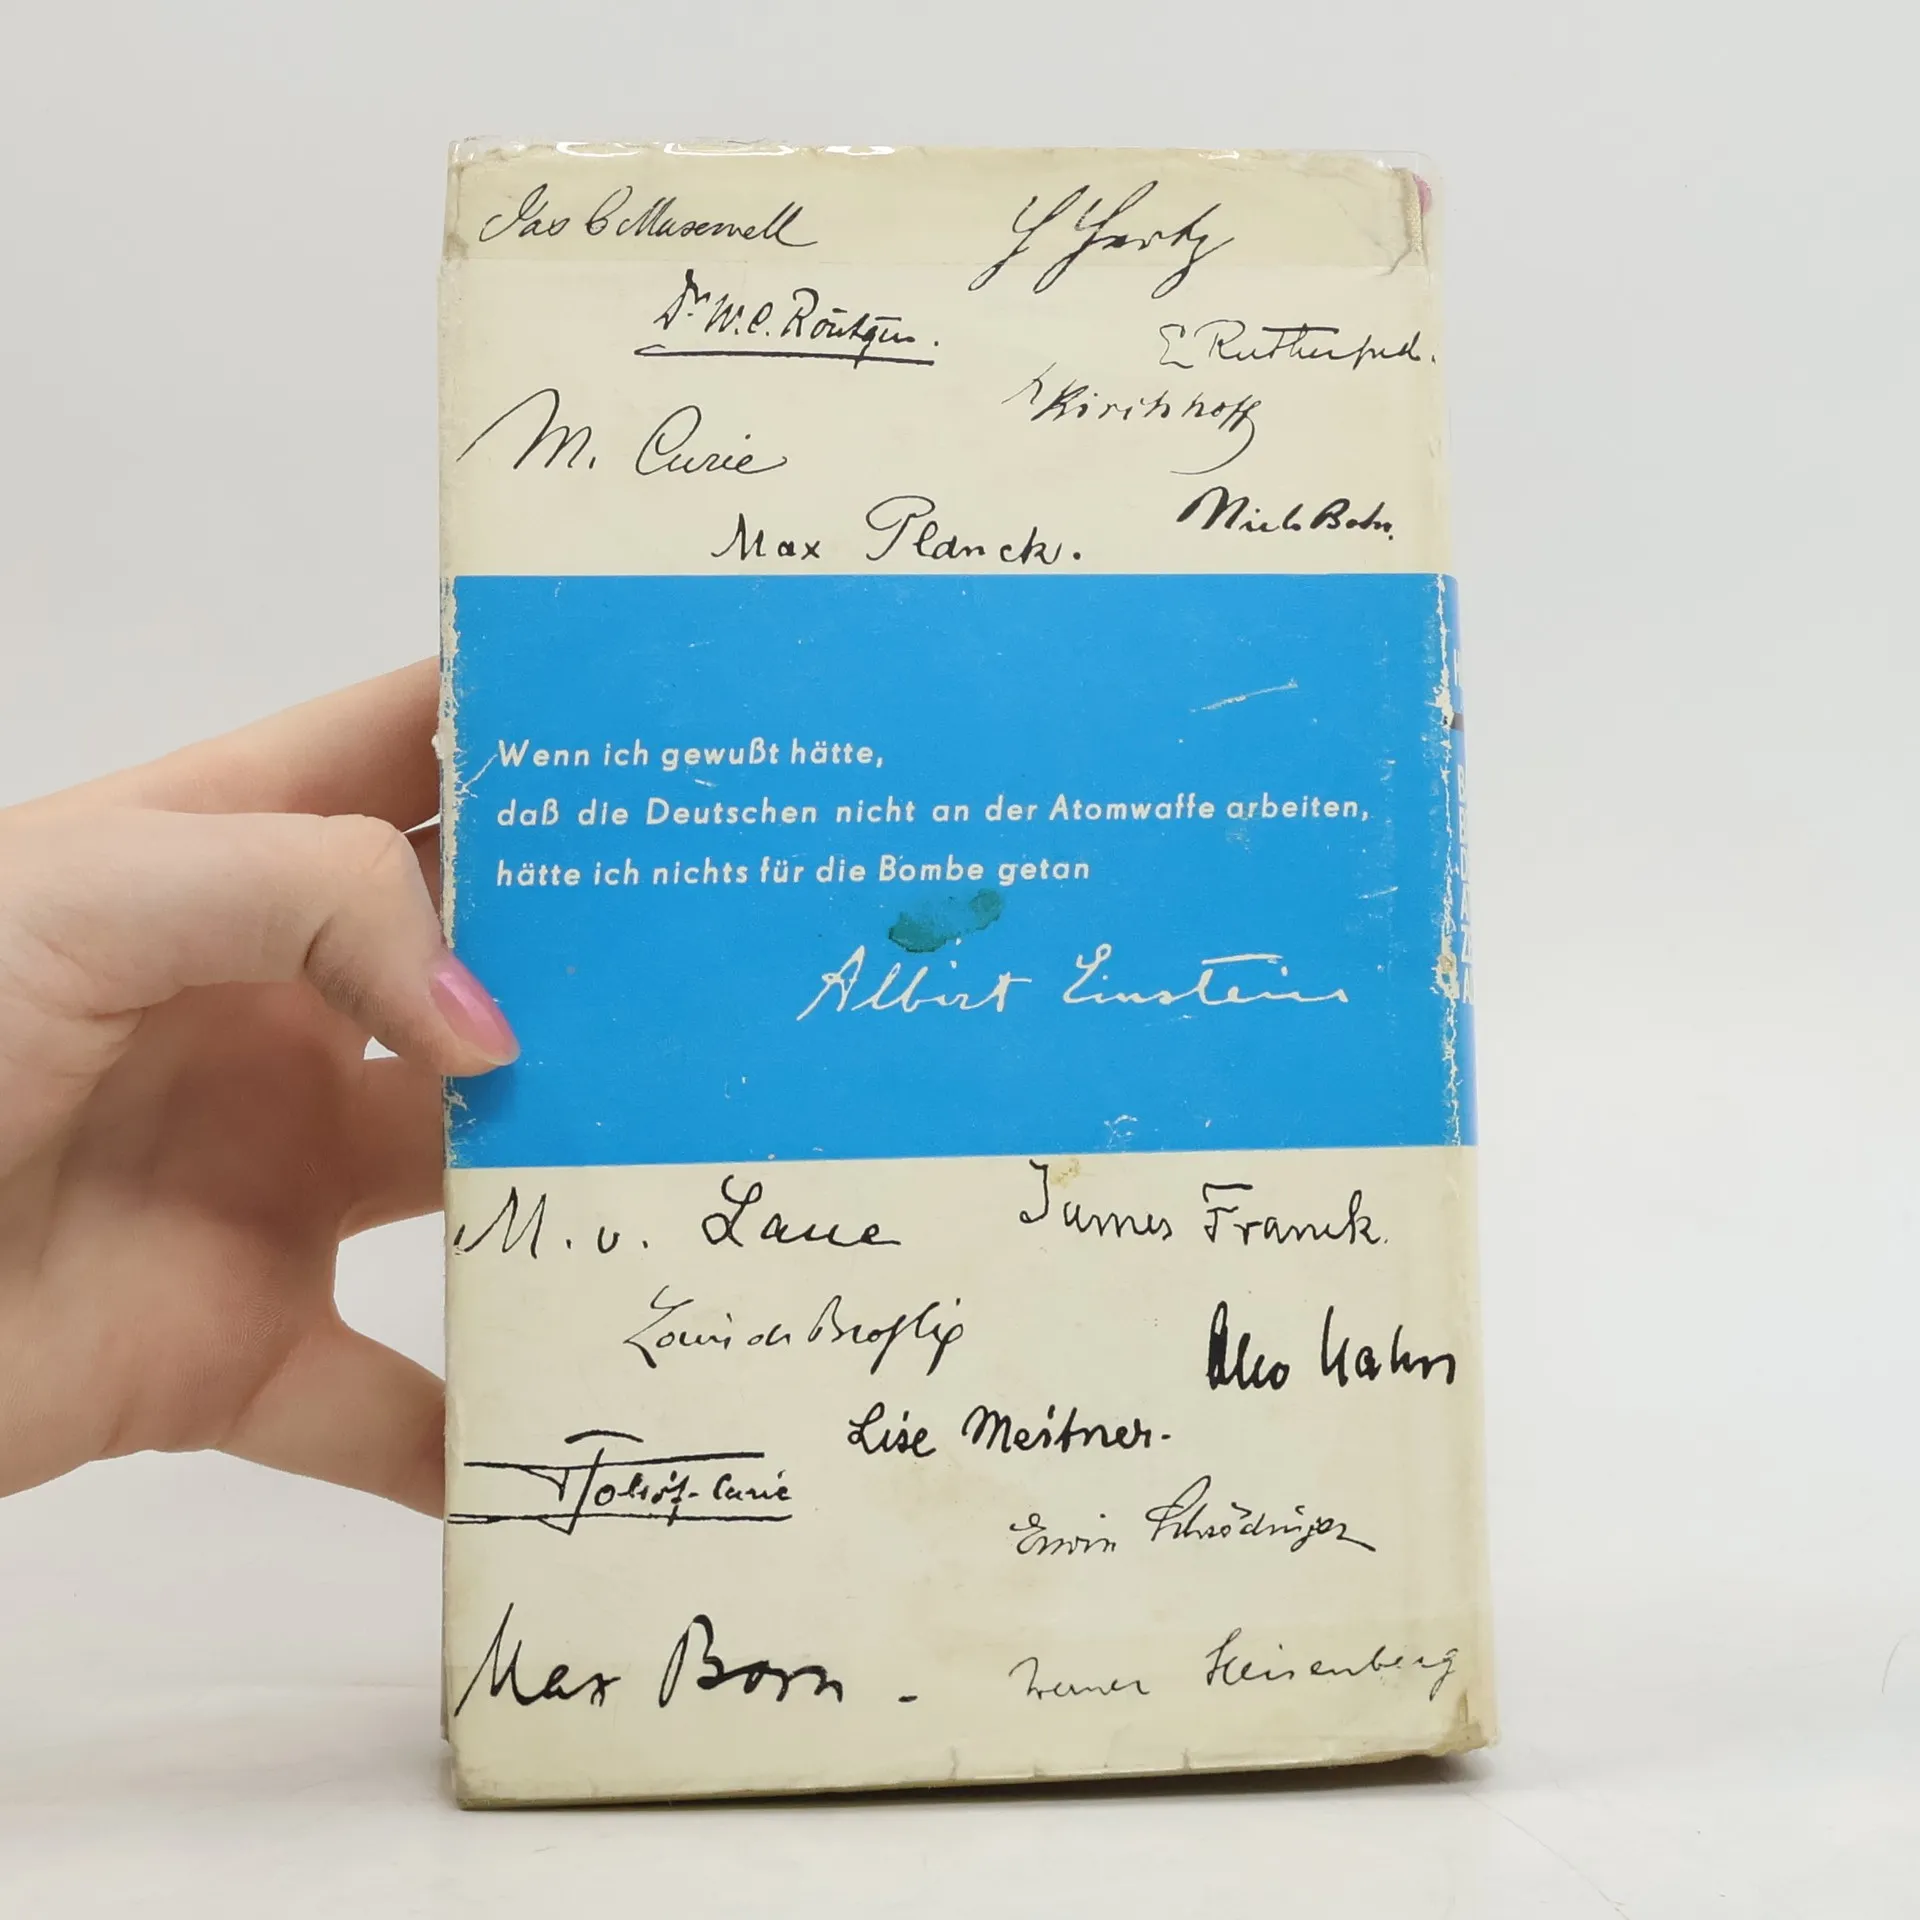 Jas C Maxwell
H Hertz
Dr. W. C. Röntgen.
E Rutherford.
Kirchhoff
M. Curie
Niels Bohr.
Max Planck.
Wenn ich gewußt hätte,
daß die Deutschen nicht an der Atomwaffe arbeiten,
hätte ich nichts für die Bombe getan
Albert Einstein
M. v. Laue
James Franck.
Louis de Broglie
Otto Hahn
Lise Meitner.
Joliot-Curie
Erwin Schrödinger
Max Born.
Werner Heisenberg